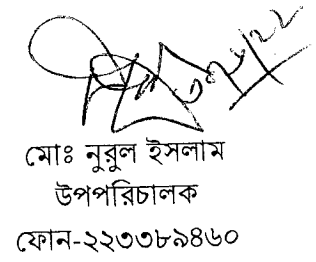 মোঃ নুরুল ইসলাম
উপপরিচালক
ফোন-২২৩৩৮৯৪৬০